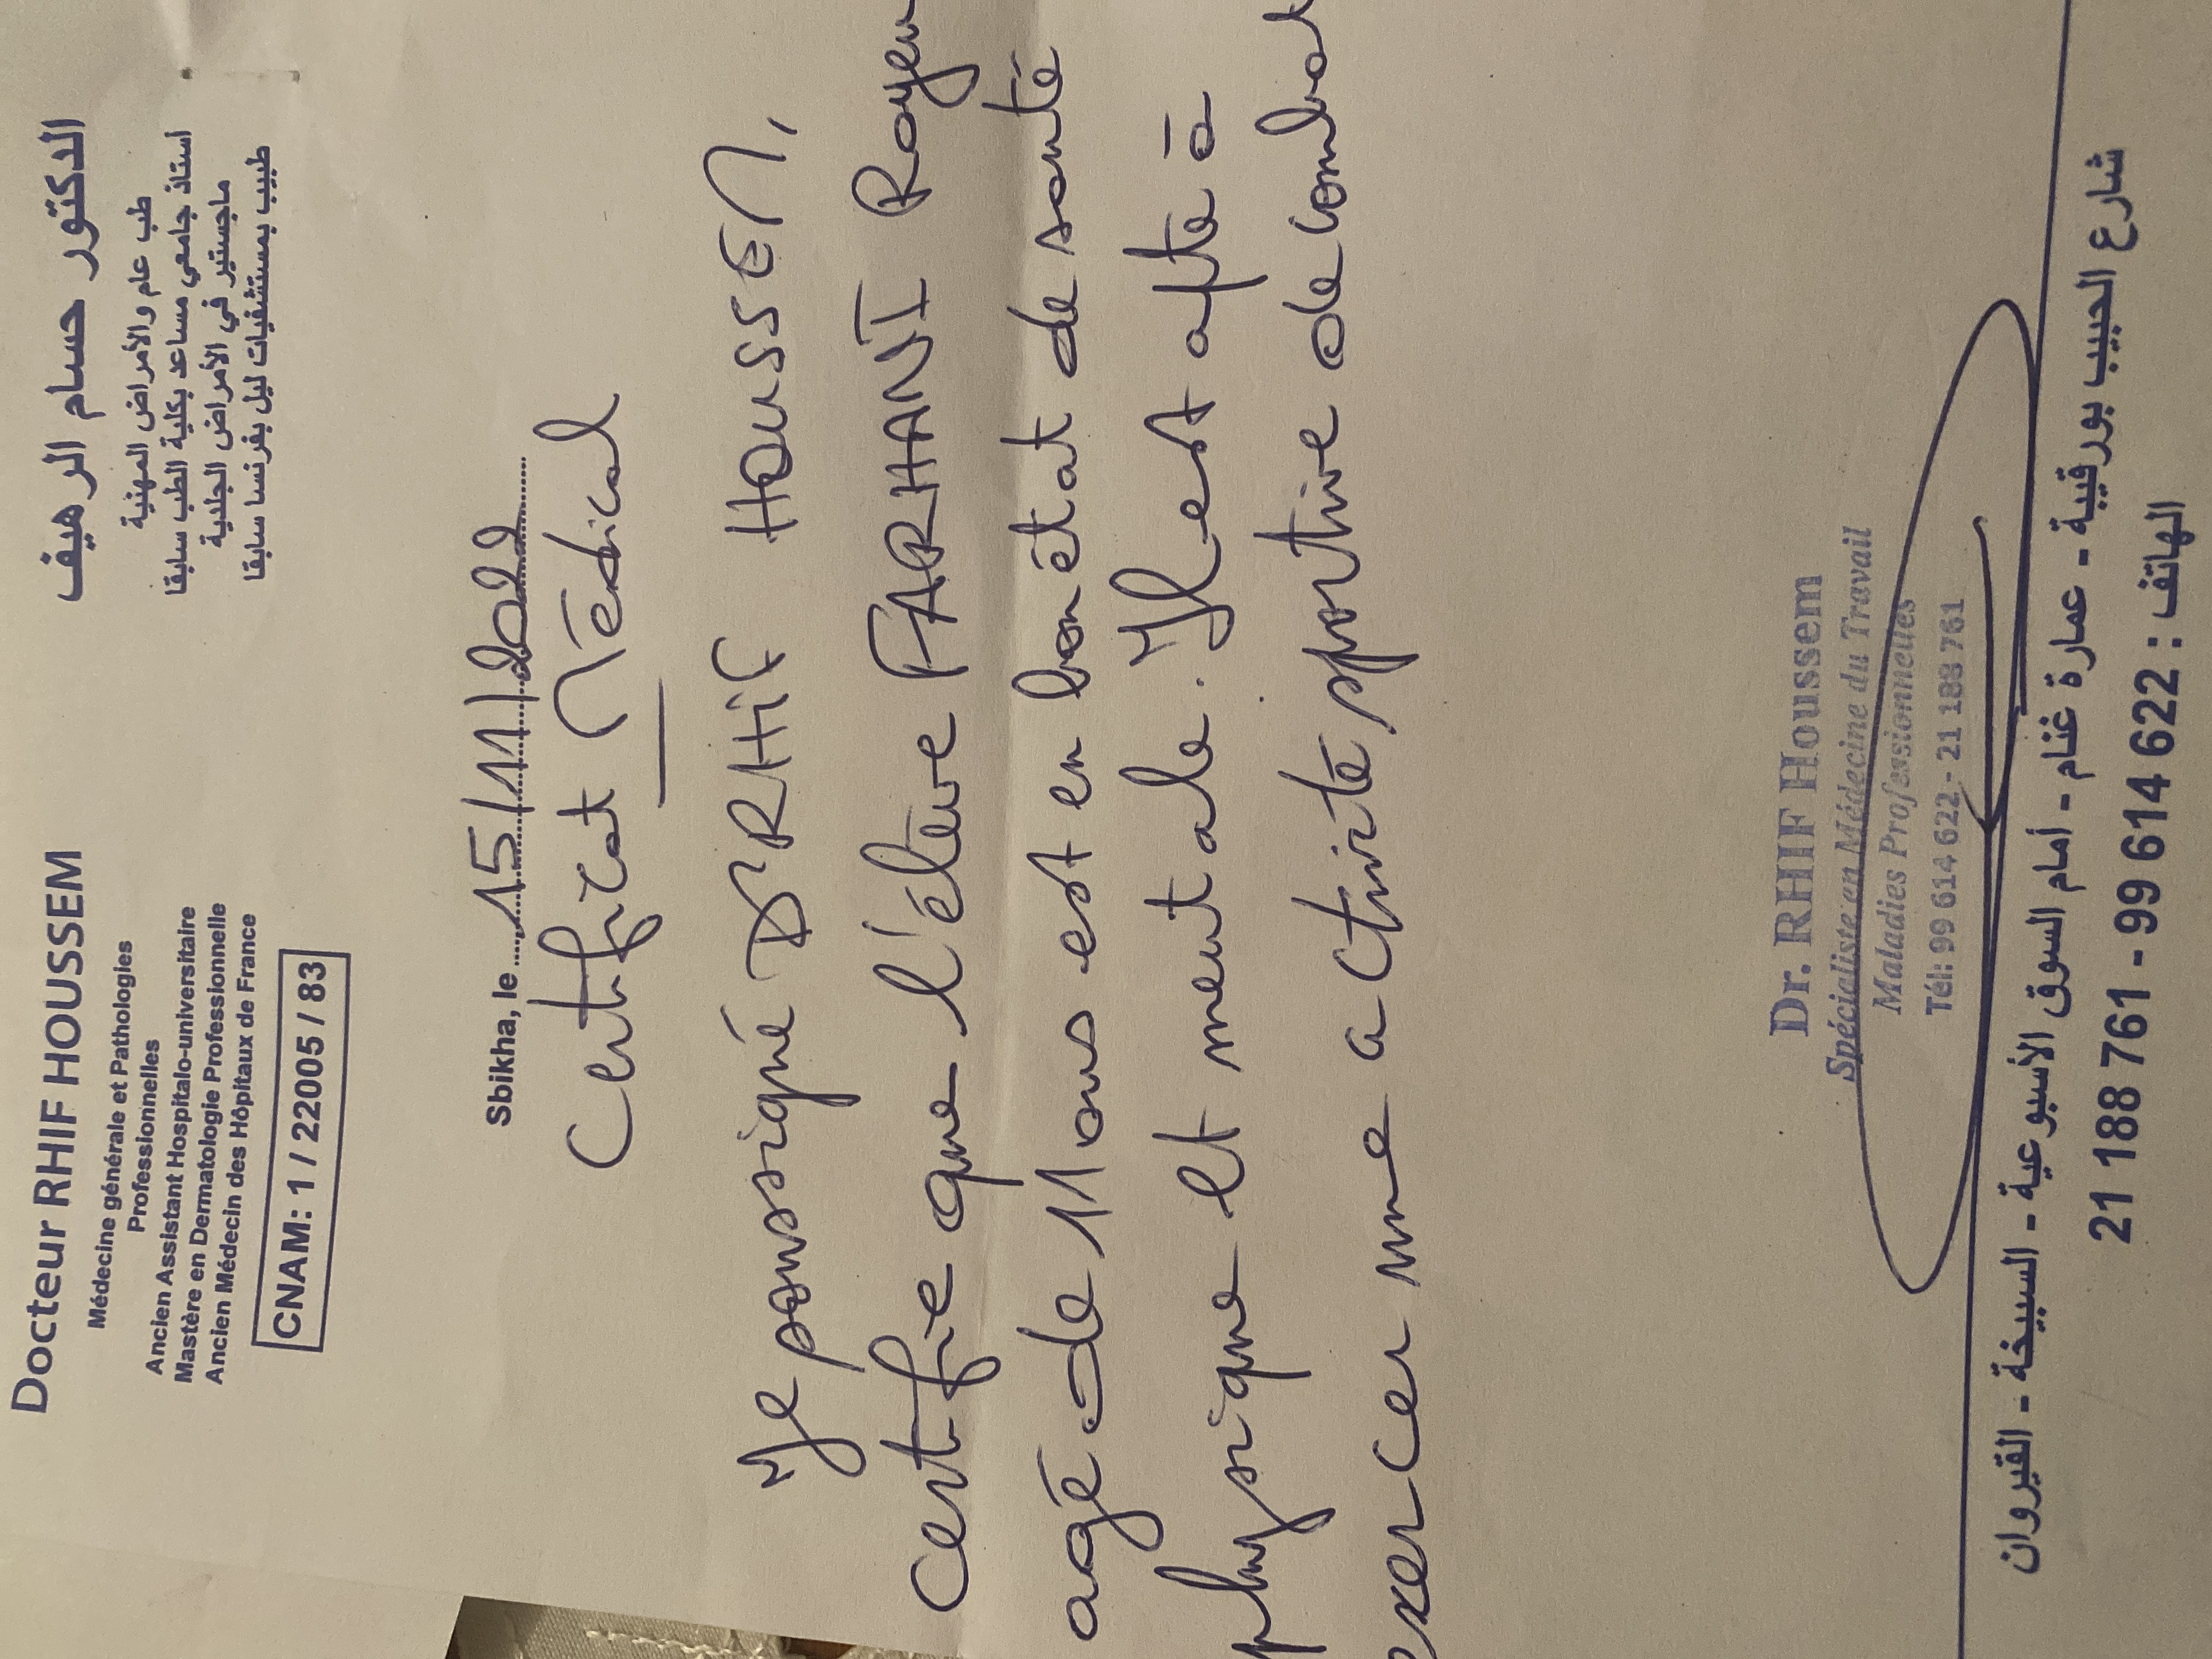 Docteur RHIF HOUSSEM
Médecine générale et Pathologies
Professionnelles
Ancien Assistant Hospitalo-universitaire
Mastère en Dermatologie Professionnelle
Ancien Médecin des Hôpitaux de France
CNAM: 1 / 22005 / 83
الدكتور حسام الرهيف
طب عام والأمراض المهنية
أستاذ جامعي مساعد بكلية الطب سابقا
ماجستير في الأمراض الجلدية
طبيب بمستشفيات ليل بفرنسا سابقا
Sbikha, le 15/11/2022
Certificat Médical
Je soussigné Dr RHIF HOUSSEM,
certifie que l'élève FARHANI Rayen
agé de 11 ans est en bon état de santé
physique et mentale. Il est apte à
exercer une activité sportive de combat
Dr. RHIF Houssem
Spécialiste en Médecine du Travail
Maladies Professionnelles
Tél: 99 614 622 - 21 188 761
شارع الحبيب بورقيبة - عمارة غنام - أمام السوق الأسبوعية - السبيخة - القيروان
الهاتف : 21 188 761 - 99 614 622